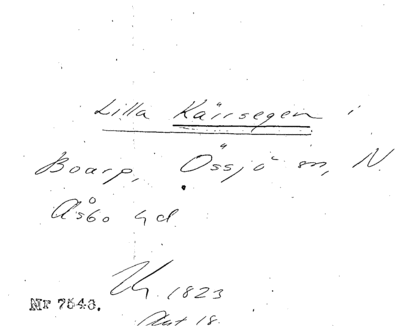 Lilla Kärrsegen i
Boarp, Össjö sn, N.
Åsbo hd.
1823
Nr 7543.